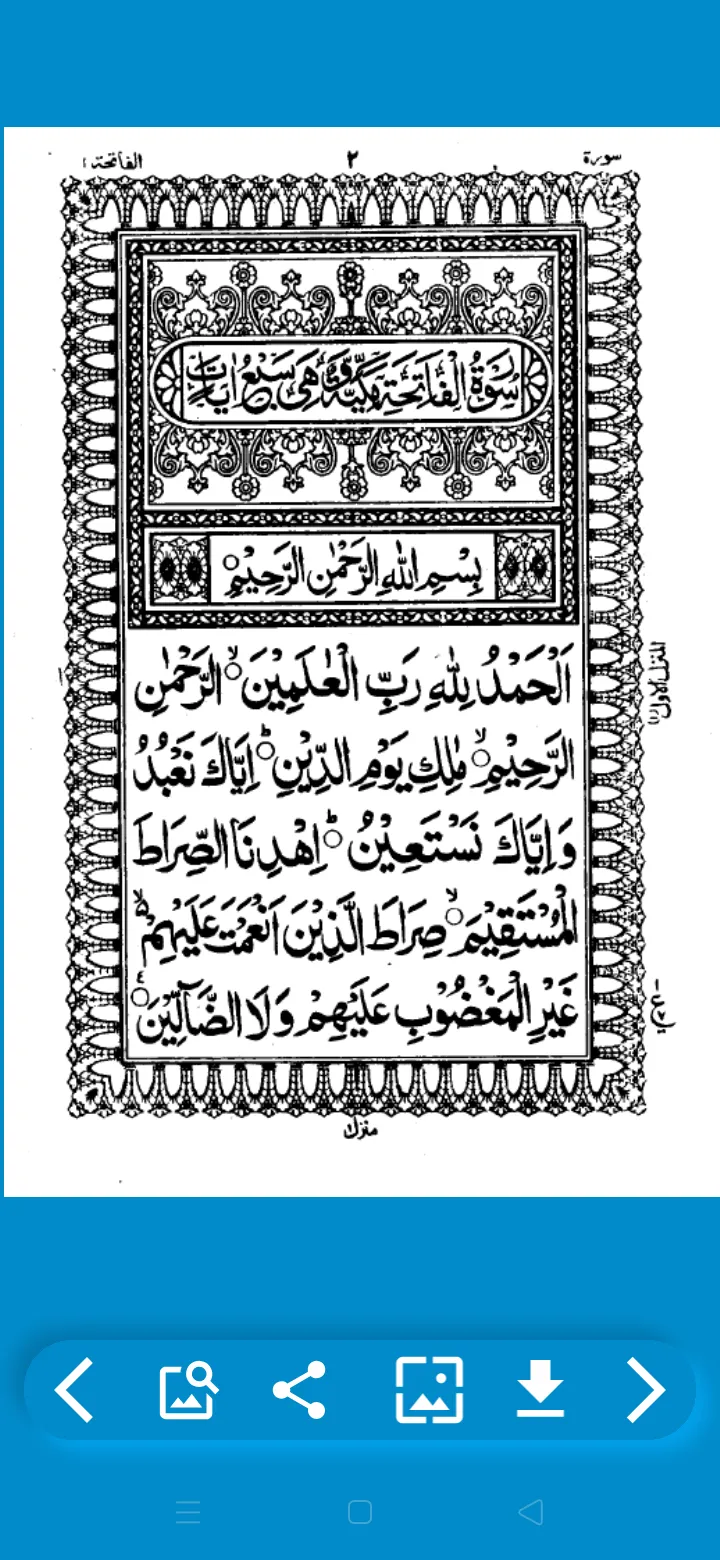 سورة ٢ الفاتحة ١
سُوْرَةُ الْفَاتِحَةِ مَكِّيَّةٌ وَّهِىَ سَبْعُ اٰيَاتٍ
بِسْمِ اللّٰهِ الرَّحْمٰنِ الرَّحِيْمِ○
اَلْحَمْدُ لِلّٰهِ رَبِّ الْعٰلَمِيْنَ○ۙ الرَّحْمٰنِ
الرَّحِيْمِ○ۙ مٰلِكِ يَوْمِ الدِّيْنِ○ؕ اِيَّاكَ نَعْبُدُ
وَاِيَّاكَ نَسْتَعِيْنُ○ؕ اِهْدِنَا الصِّرَاطَ
الْمُسْتَقِيْمَ○ۙ صِرَاطَ الَّذِيْنَ اَنْعَمْتَ عَلَيْهِمْ ۙ۬
غَيْرِ الْمَغْضُوْبِ عَلَيْهِمْ وَلَا الضَّآلِّيْنَ○
المنزل الاول (١)
منزل